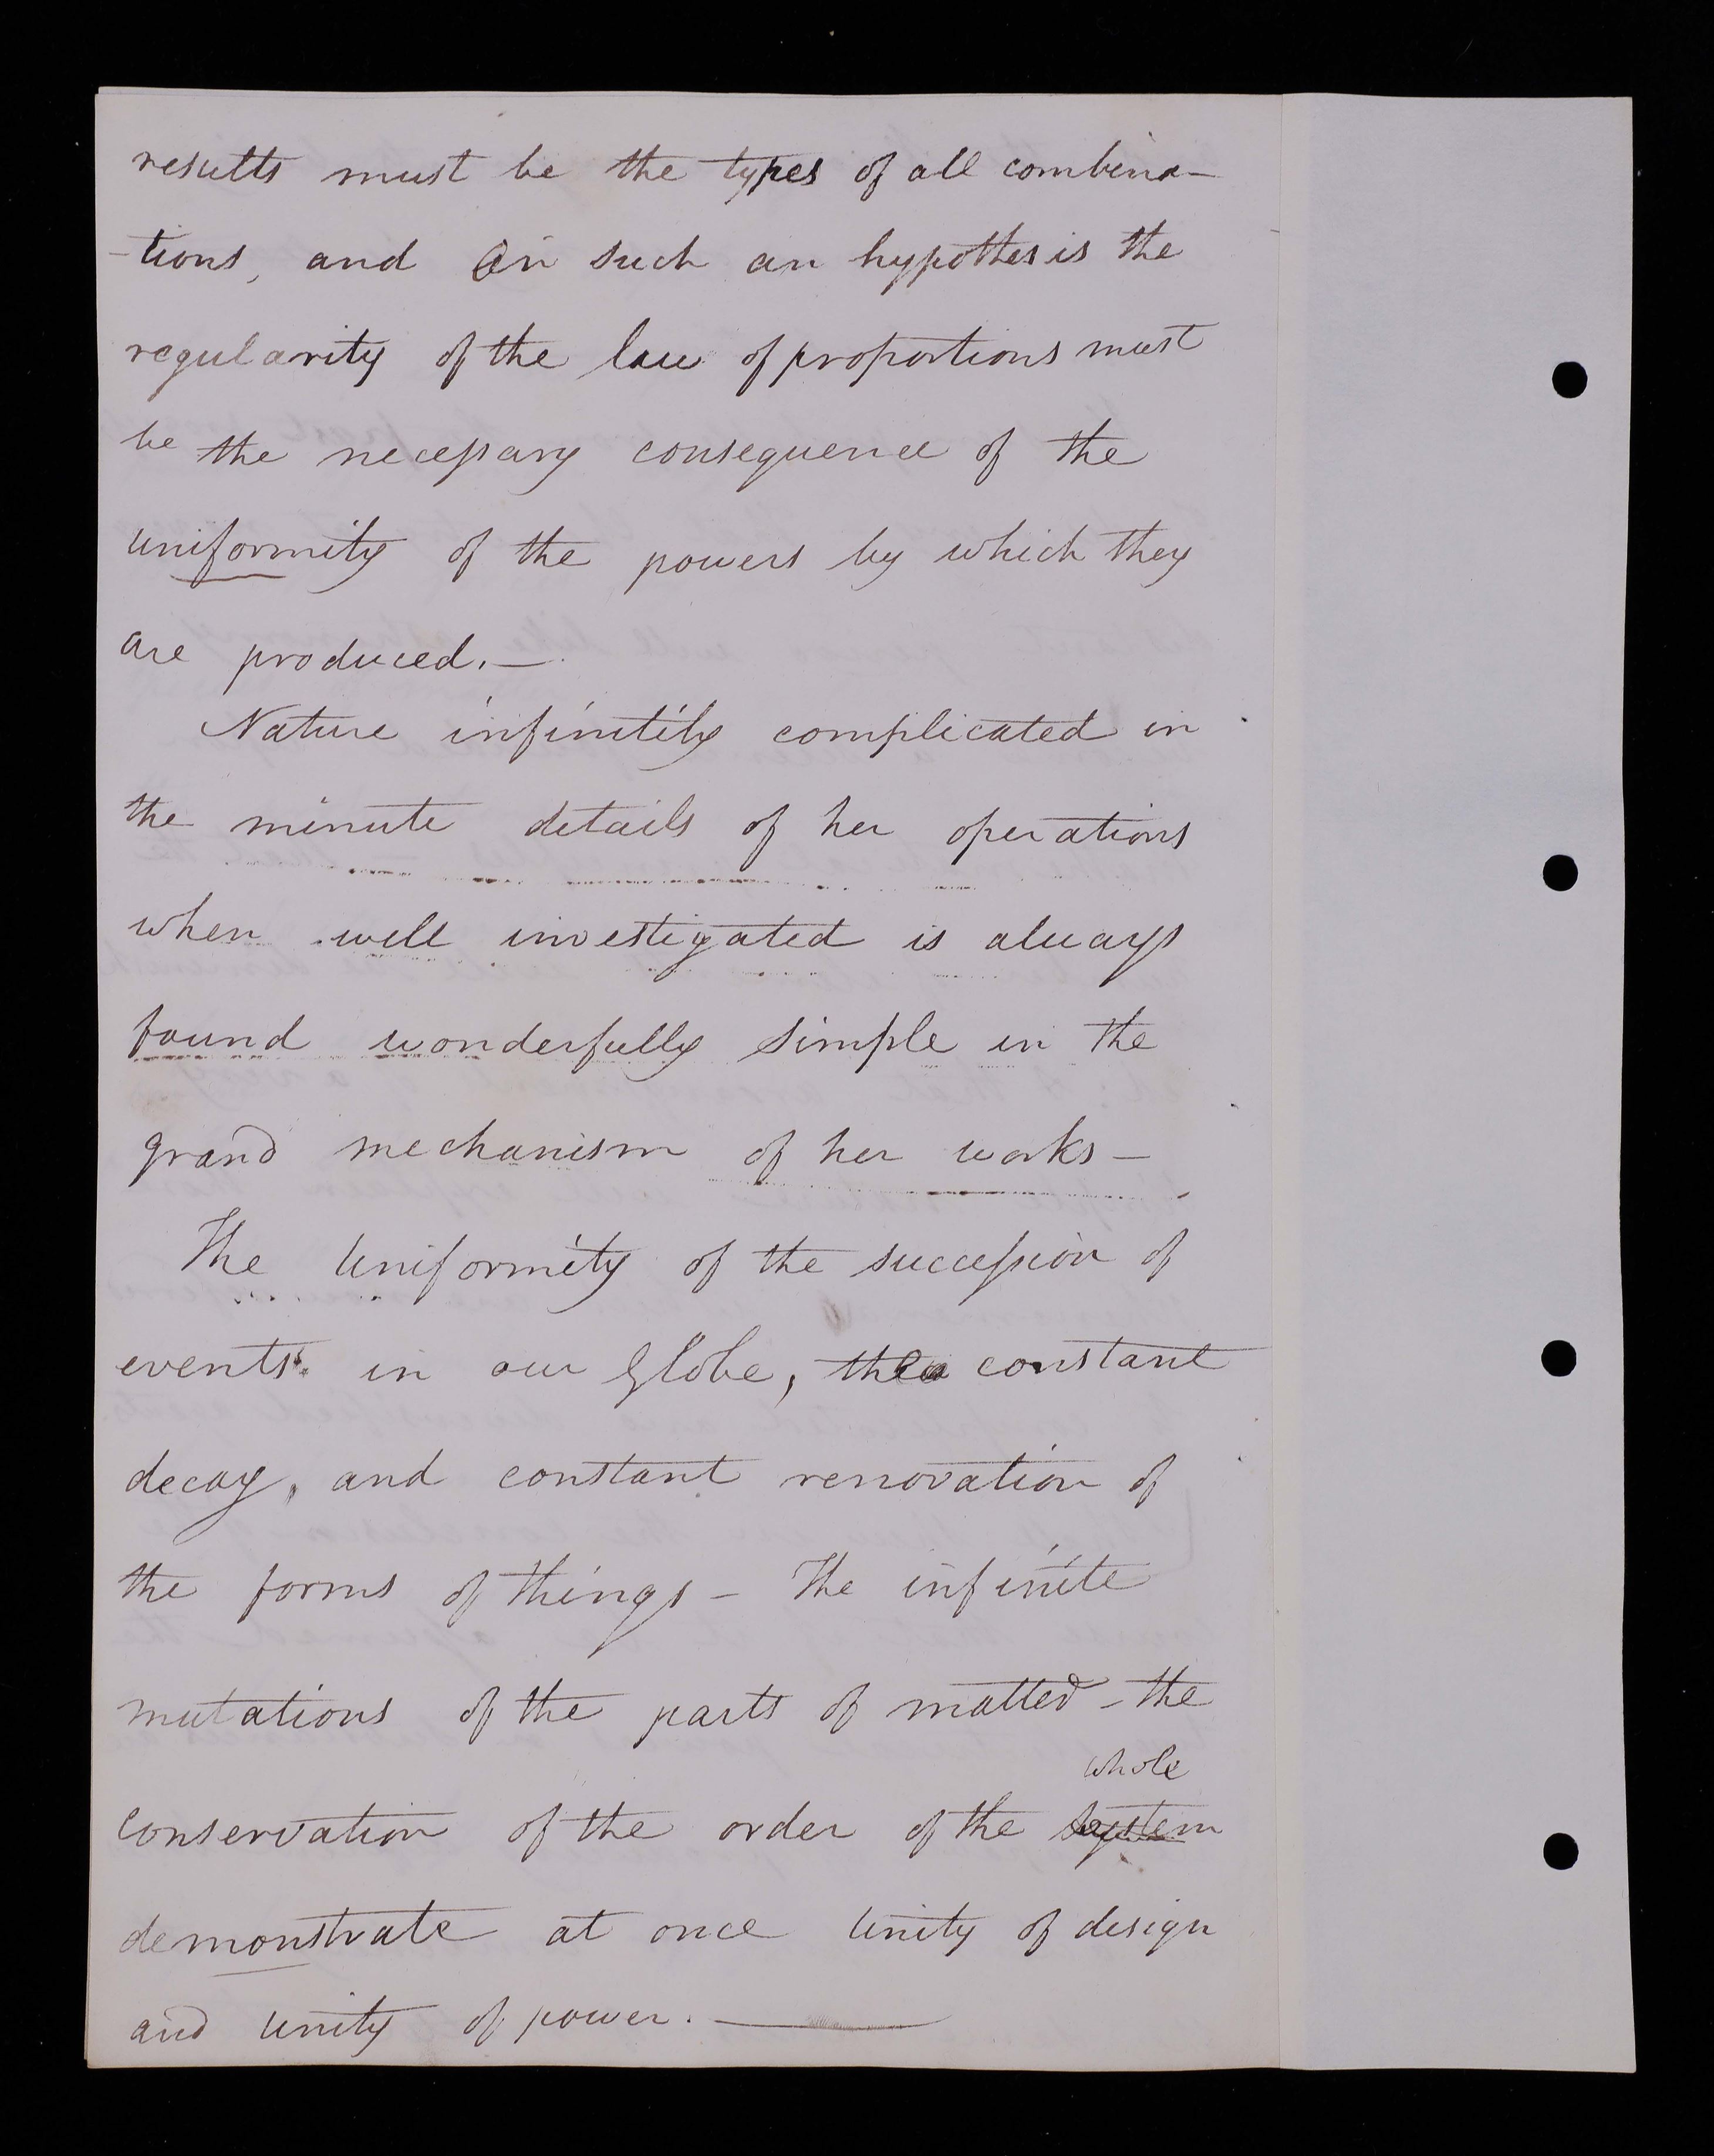 results must be the types of all combina-
-tions, and On such an hypothesis the
regularity of the law of proportions must
be the necessary consequence of the
uniformity of the powers by which they
are produced.—
Nature infinitily complicated in
the minute details of her operations
when well investigated is always
found wonderfully simple in the
grand mechanism of her works—
The Uniformity of the succession of
events in our Globe, the constant
decay, and constant renovation of
the forms of things - The infinite
mutations of the parts of matter - the
whole
conservation of the order of the system
demonstrate at once Unity of design
and Unity of power.—